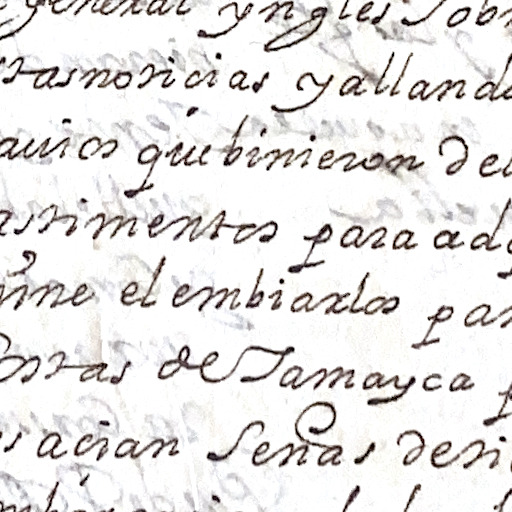 general yngles sob
tas noticias y alland
auios que binieron del
astimentos para ad
me el embiarlos par
ostas de Jamayca p
s acian señas de si